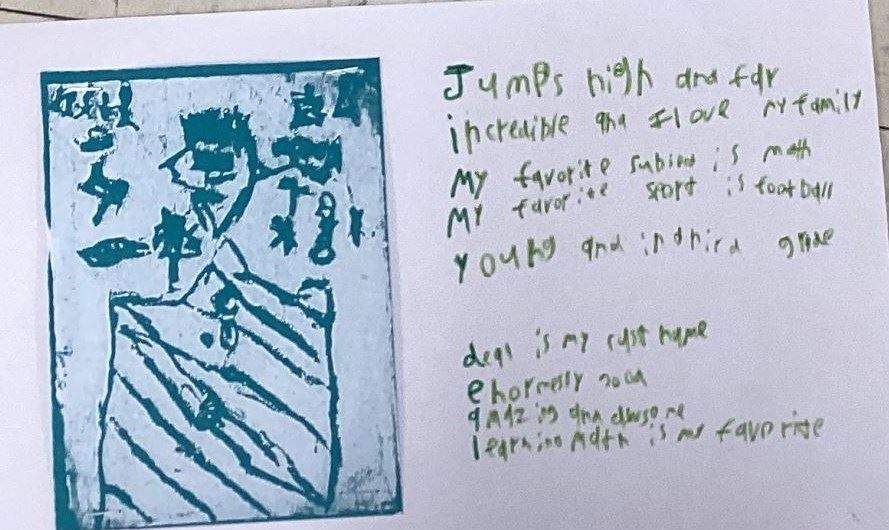 Jumps high and far
incredible and I love my family
My favorite subject is math
My favorite sport is football
Young and in third grade
deal is my last name
enormelly good
amazing and awsome
learning math is my favorite